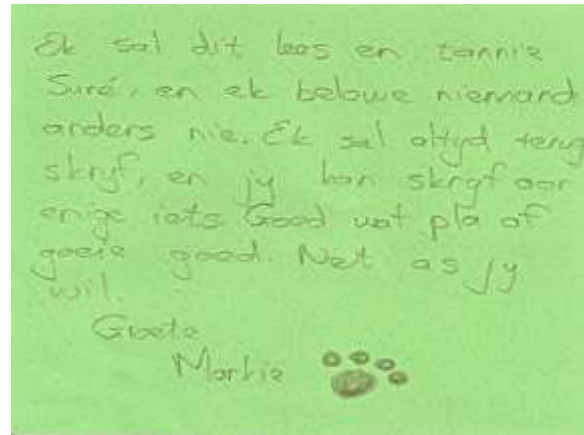 Ek sal dit lees en tannie
Suné, en ek belowe niemand
anders nie. Ek sal altyd terug
skryf, en jy kan skryf oor
enige iets Goed wat pla of
goeie goed. Net as jy
wil.
Groete